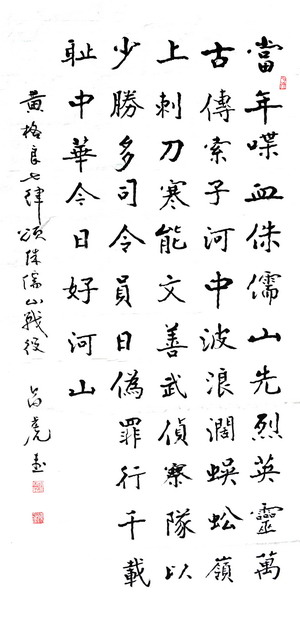 當年喋血侏儒山先烈英靈萬
古傳索子河中波浪濶蜈蚣嶺
上刺刀寒能文善武偵察隊以
少勝多司令員日偽罪行千載
耻中華今日好河山
黄格良七律頌侏儒山戰役